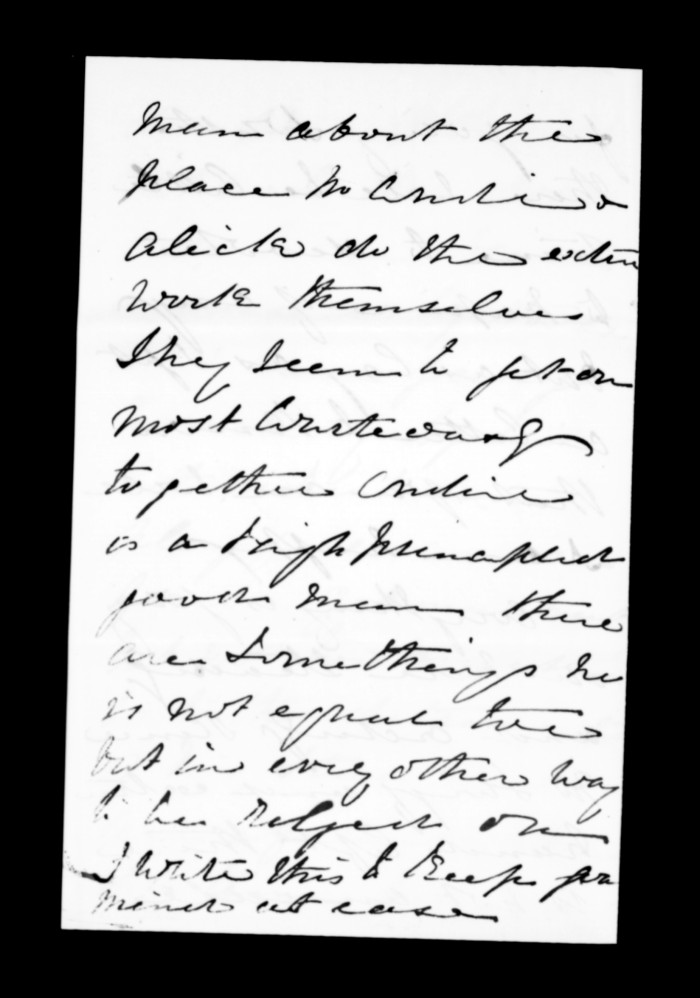 man about the
place
Alick do the extra
work themselves
They seem to get on
most Courteously
together Condie
is a high principled
good man there
are some things he
is not equal too
but in every other way
to be
I write this to keep your
mind at ease